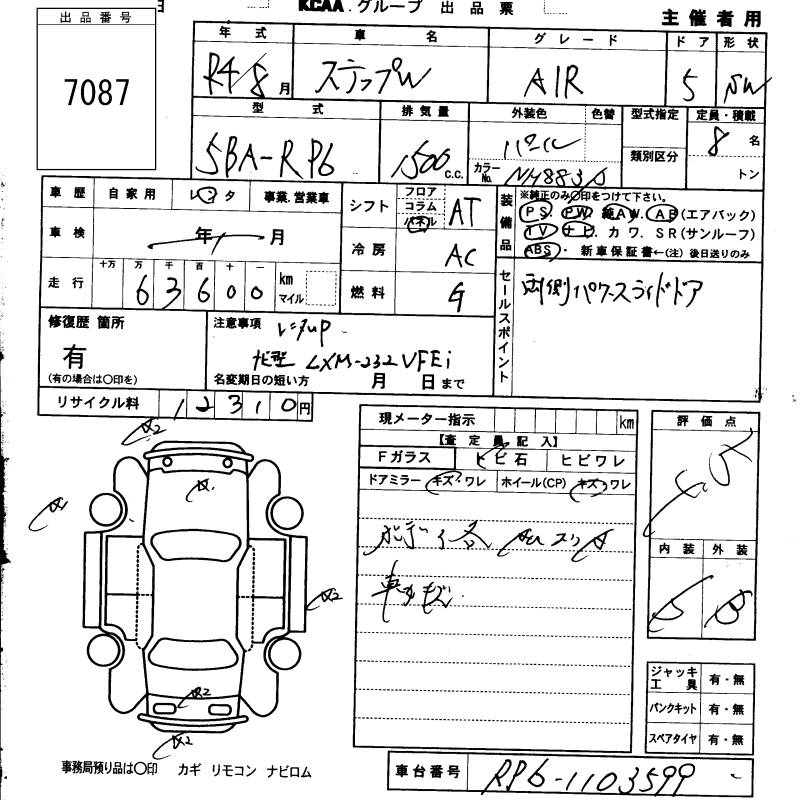 KCAA.グループ 出品票
主催者用
出品番号
7087
年式 車名 グレード ドア 形状
R4/8月 ステップW AIR 5 SW
型式 排気量 外装色 色替 型式指定 定員・積載
5BA-RP6 1500 c.c. パール 8名
カラーNo. NH883P 類別区分 トン
車歴 自家用 レンタ 事業.営業車
シフト フロア コラム パネル AT
装備品 ※純正のみ〇印をつけて下さい。
PS. PW. 純AW. AB(エアバック)
TV ナビ. カワ. SR(サンルーフ)
ABS. 新車保証書←(注)後日送りのみ
車検 年 月
冷房 AC
走行 十万 万 千 百 十 一 km マイル
63600
燃料 G
セールスポイント 両側パワースライドドア
修復歴 箇所
有
(有の場合は〇印を)
注意事項 レンタUP
ナビ型 LXM-232VFEi
名変期日の短い方 月 日まで
リサイクル料 12310円
現メーター指示 km
【査定員記入】
Fガラス ヒビ石 ヒビワレ
ドアミラー キズ・ワレ ホイール(CP) キズ・ワレ
評価点
内装 外装
A2
A1
A1
A2
A2
A2
ジャッキ工具 有・無
パンクキット 有・無
スペアタイヤ 有・無
事務局預り品は〇印 カギ リモコン ナビロム
車台番号 RP6-1103599